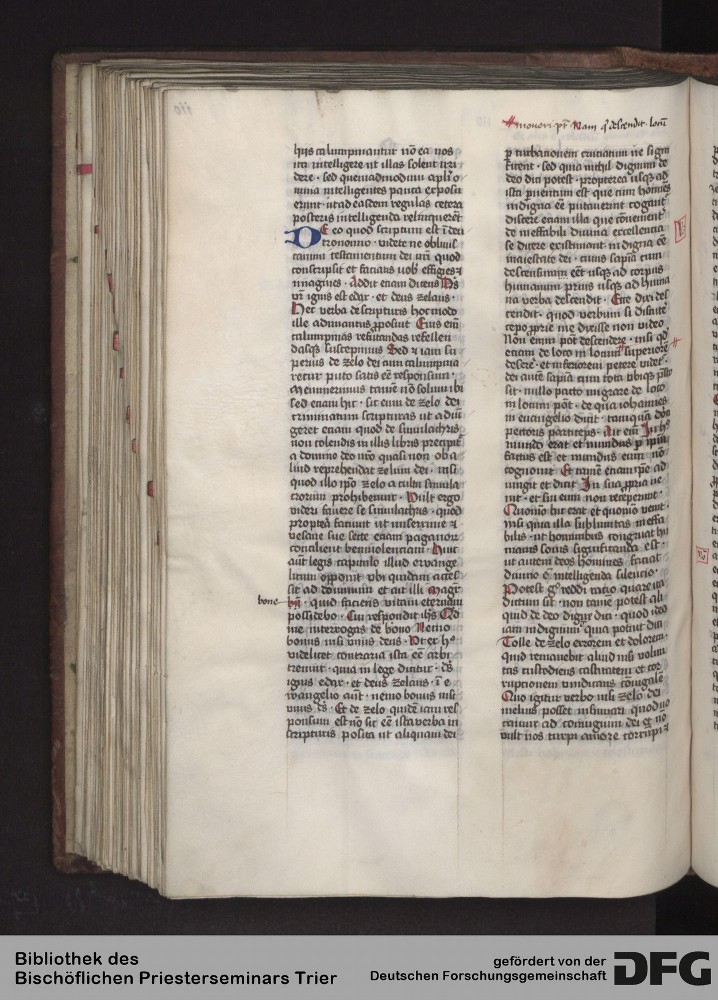 moueri pt̄ Nam qd̄ descendit locū
hijs calumpniantur nō ea nos
ita intelligere ut illas solent irri
dere · sed quemadmodum apl̄i o
mnia intelligentes pauca exposu
erunt · ut ad easdem regulas cetera
posteris intelligenda relinquerēt
DE eo quod scriptum est ī deu
tronomio · videte ne obliuis
camini testamentum dei ur̄i quod
conscripsit et faciatis uob̄ effigies ⁊
ymagines · Addit etiam dicens Dꝰ
ur̄ ignis est edax · et deus zelans ·
Hec verba descripturis hoc modo
ille adimantus ꝓposuit Cuius eni
calumpnias refutandas refellen
dasqꝫ suscepimus Sed ⁊ iam su
perius de zelo dei cum calumpnia
retur puto satis eē responsum ·
Meminerimus tamē nō solum ibi
sed etiam hic · sic eum de zelo dei
criminatum scripturas ut adiu
geret etiam quod de simulachris
non colendis in illis libris precipit᷑
a domino deo nr̄o quasi non ob a
liud reprehendat zelum dei · nisi
quod illo ip̄o zelo a cultu simula
crorum prohibemur · Uult ergo
videri fauere se simulachris · quod
propterea faciunt ut miserrime ⁊
vesane sue secte etiam paganorū
concilient beniuolentiam · Huic
aut̄ legis capitulo illud ewange
licum opponit vbi quidam acces
sit ad dominum et ait illi Magr̄
bone
bn̄ · quid faciens vitam eternam
possidebo · Cui respondit ih̄s Qd̄
me interrogas de bono Nemo
bonus nisi vnus deus · Ut et hᵒ
videlicet contraria ista eē arbi
tremur · quia in lege dicitur · dꝰ
ignis edax · et deus zelans · ī e
wangelio aut̄ · nemo bonus nisi
vnus dꝰ · Et de zelo quidē iam res
ponsum est nō sic eē ista verba in
scripturis posita ut aliquam dei
ꝑturbationem cruciatum ne signi
ficent · Sed quia nichil dignum de
deo dici potest · propterea usqꝫ ad
ista ꝑuentum est que cum homīes
indigna eē putauerint cogant᷑
discere etiam illa que cōueniente᷑
de ineffabili diuina excellencia
se dicere existimant indigna eē
maiestate dei · cuius sapīa cum
descensuram eēt usqꝫ ad corpus
humanum prius usqꝫ ad huma
na verba descendit · Ecce dixi des
cendit · quod verbum si discute᷑
cepo ꝓprie me dixisse non video
Non enim pōt descendere · nisi qd̄
etiam de loco in locum superiorē
deserē · et inferiorem petere videt᷑ ·
dei aut̄ sapīa cum tota ubiqꝫ p̄sto
sit · nullo pacto migrare de loco
in locum pōt · de qua iohannes
in euangelio dicit · tamquā dn̄i
pectoris particeps · Ait em̄ In hᵒ
mundo erat et mundus ꝑ ip̄m
factus est et mundus eum nō
cognouit Et tamē etiam ip̄e ad
iungit et dicit In sua ꝓpria ve
nit · et sui eum non receperunt ·
Quomō hic erat et quomō venit ·
nisi quia illa sublimitas ineffa
bilis · ut hominibus congruat hu
manis sonis significanda est ·
ut autem deos homines faciat
diuino ē intelligenda silencio ·
Potest gᵒ reddi racio quare ita
dictum sit · non tamē potest ali
quid de deo digne dici · quod ideo
iam indignum quia potuit dici
Tolle de zelo errorem et dolorem ·
quid remanebit aliud nisi volun
tas custodiens castitatem et cor
ruptionem vindicans coniugalē
Quo igitur verbo nisi zelo dei
melius posset insinuari quod uo
camur ad coniugium dei ⁊ nō
vult nos turpi amore corrumpi ⁊
Bibliothek des
Bischöflichen Priesterseminars Trier
gefördert von der
Deutschen Forschungsgemeinschaft
DFG